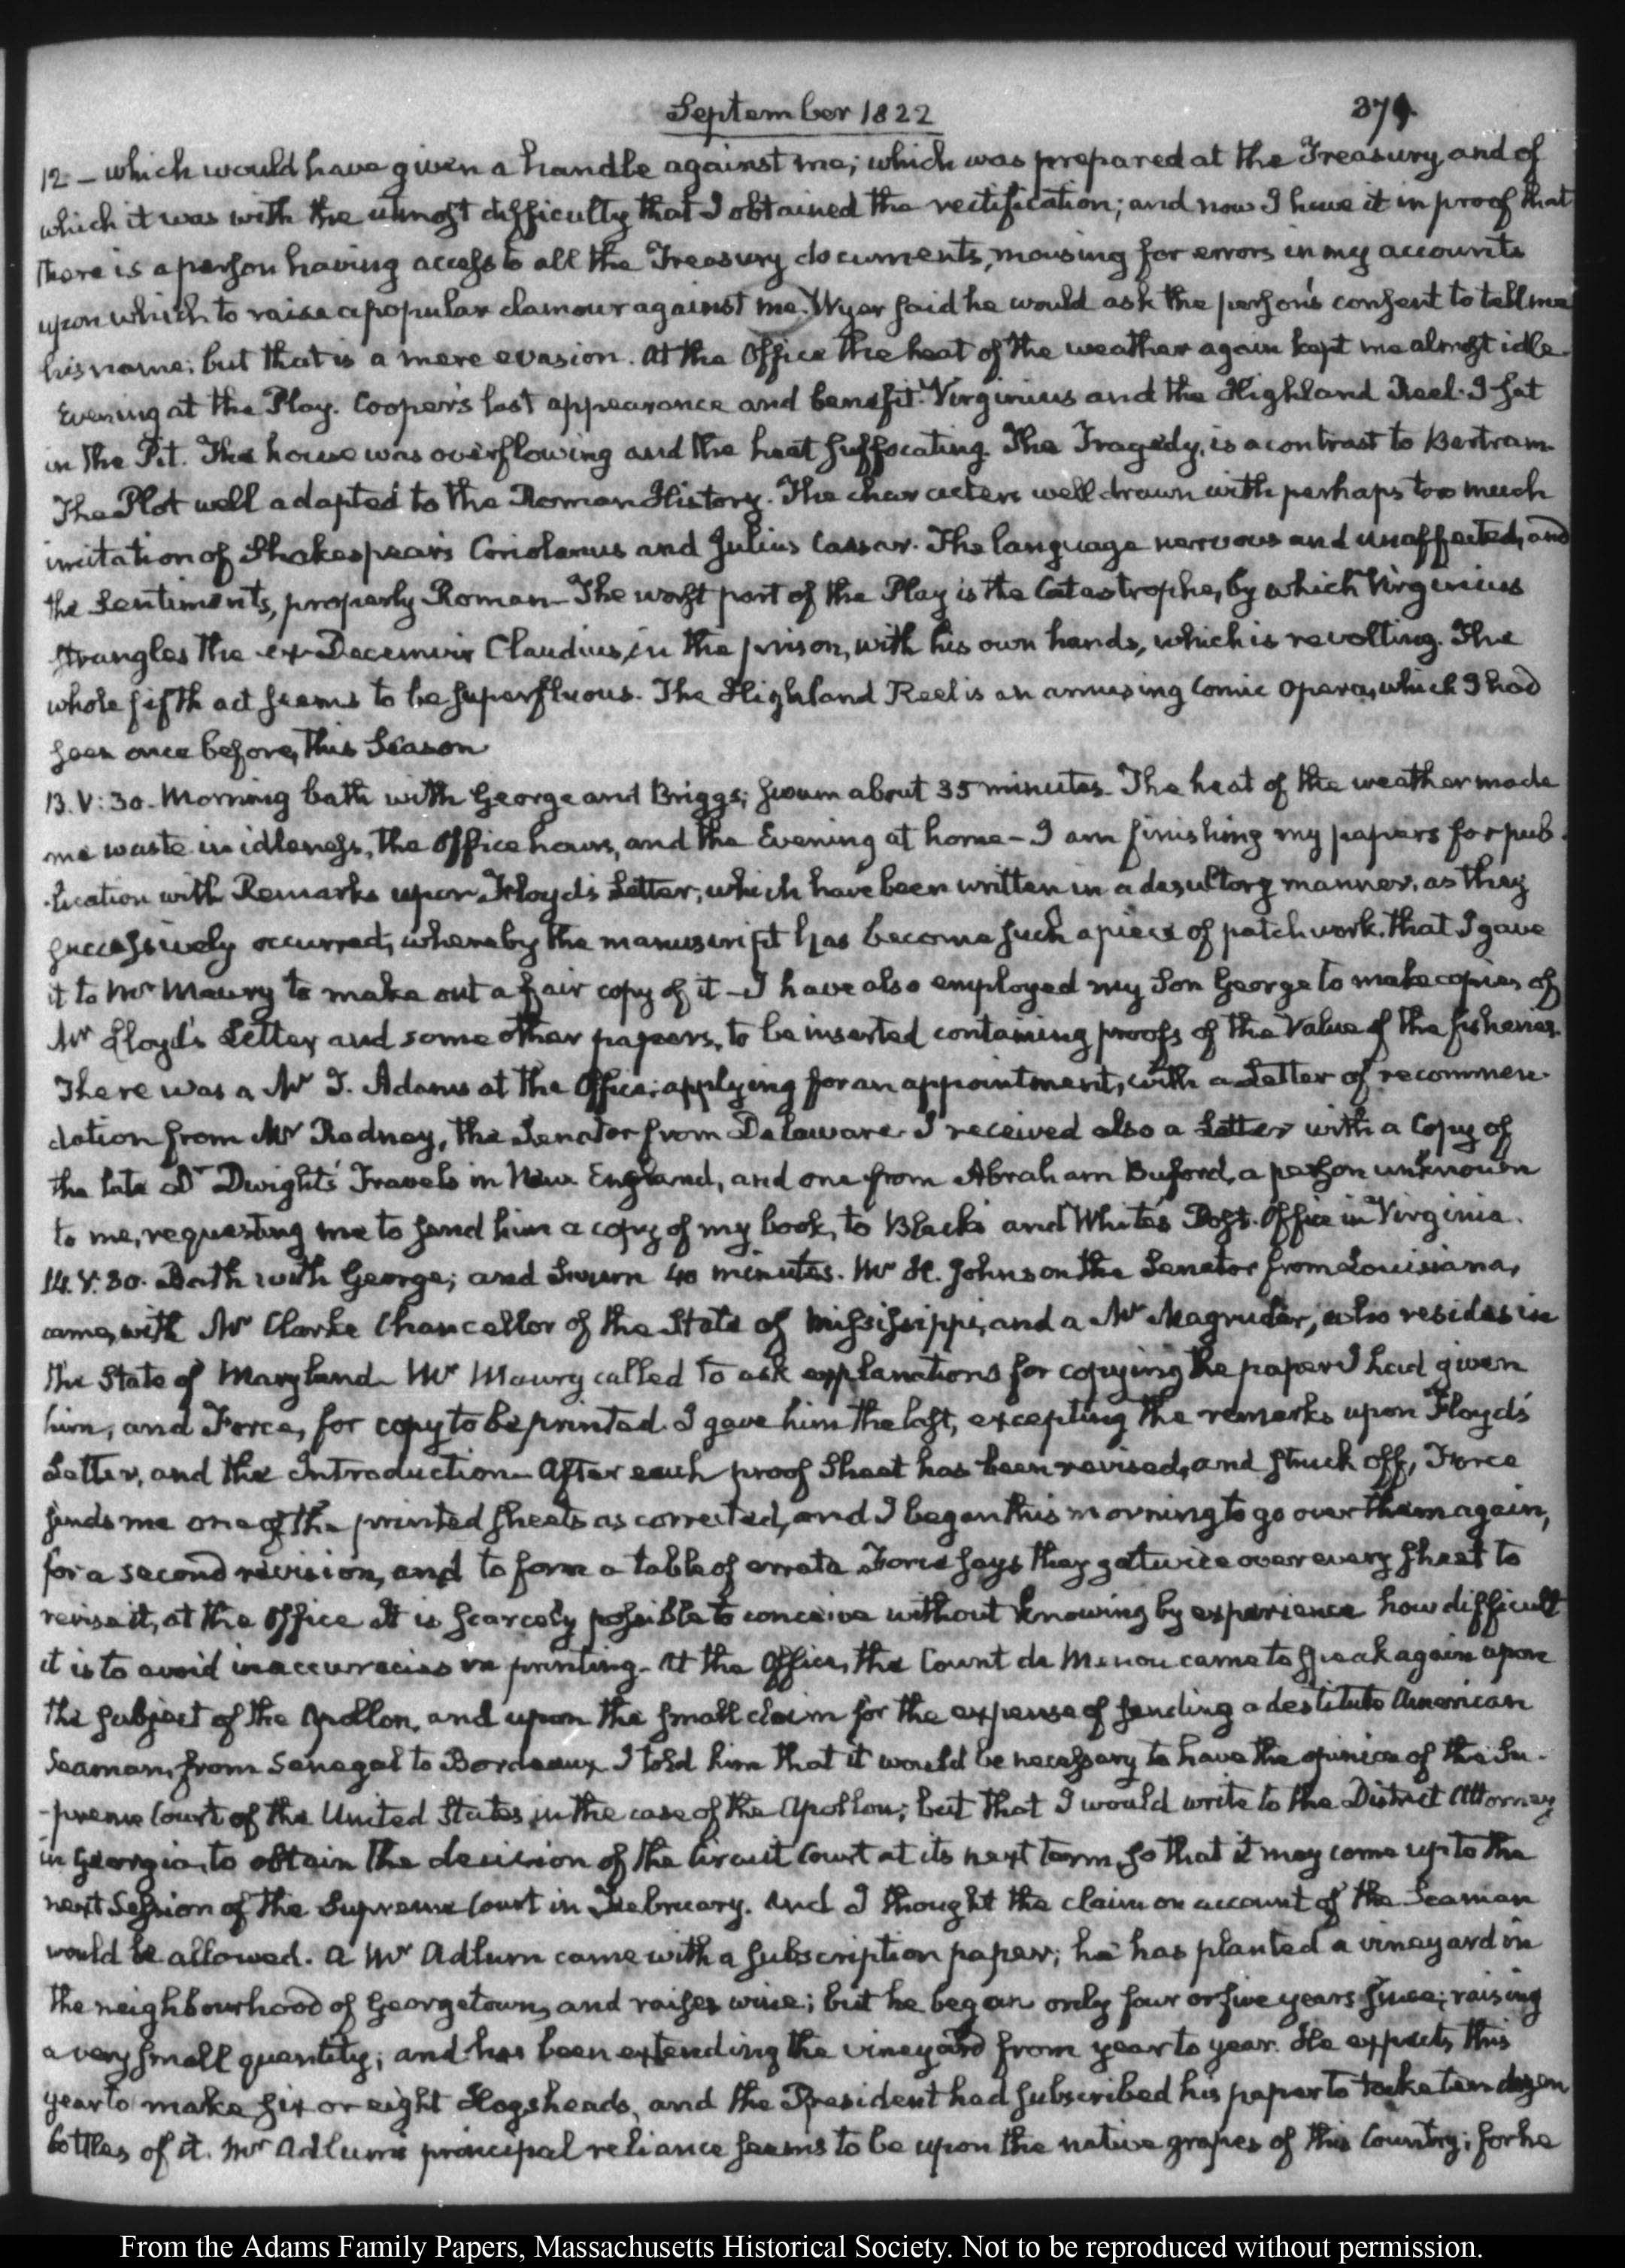 September 1822
379.
12 – which would have given a handle against me; which was prepared at the Treasury, and of
which it was with the utmost difficulty that I obtained the rectification; and now I have it in proof that
there is a person having access to all the Treasury documents, mousing for errors in my accounts
upon which to raise a popular clamour against me. Wyer said he would ask the person's consent to tell me
his name; but that is a mere evasion. At the Office the heat of the weather again kept me almost idle.
Evening at the Play. Cooper's last appearance and benefit. Virginius and the Highland Reel. I sat
in the Pit. The house was overflowing and the heat suffocating. The Tragedy, is a contrast to Bertram.
The Plot well adapted to the Roman History. The characters well drawn with perhaps too much
imitation of Shakespear's Coriolanus and Julius Caesar. The language nervous and unaffected, and
the Sentiments, properly Roman – The worst part of the Play is the Catastrophe, by which Virginius
strangles the ex-Decemvir Claudius, in the prison, with his own hands, which is revolting. The
whole fifth act seems to be superfluous. The Highland Reel is an amusing Comic Opera, which I had
seen once before, this Season
13. V:30. Morning bath with George and Briggs; swum about 35 minutes. The heat of the weather made
me waste in idleness, the Office hours, and the Evening at home – I am finishing my papers for pub-
-lication with Remarks upon Floyd's Letter; which have been written in a desultory manner, as they
successively occurred, whereby the manuscript has become such a piece of patchwork, that I gave
it to Mr Maury to make out a fair copy of it – I have also employed my Son George to make copies of
Mr Lloyd's Letter and some other papers, to be inserted containing proofs of the Value of the fisheries.
There was a Mr T. Adams at the Office; applying for an appointment, with a Letter of recommen-
dation from Mr Rodney, the Senator from Delaware. I received also a Letter with a Copy of
the late Dr Dwight's Travels in New England, and one from Abraham Buford, a person unknown
to me, requesting me to send him a copy of my book, to Blacks' and White's Post-Office in Virginia.
14. V:30. Bath with George; and Swum 40 minutes. Mr H. Johnson the Senator from Louisiana,
came, with Mr Clarke Chancellor of the State of Mississippi, and a Mr Magruder, who resides in
the State of Maryland – Mr Maury called to ask explanations for copying the paper I had given
him, and Force, for copy to be printed. I gave him the last, excepting the remarks upon Floyd's
Letter, and the Introduction – After each proof Sheet has been revised, and struck off, Force
sends me one of the printed sheets as corrected, and I began this morning to go over them again,
for a second revision, and to form a table of errata. Force says they go twice over every sheet to
revise it, at the Office. It is scarcely possible to conceive without knowing by experience how difficult
it is to avoid inaccuracies in printing – At the Office, the Count de Menou came to speak again upon
the subject of the Apollon, and upon the small claim for the expense of sending a destitute American
Seaman, from Senegal to Bordeaux. I told him that it would be necessary to have the opinion of the Su-
-preme Court of the United States, in the case of the Apollon; but that I would write to the District Attorney
in Georgia, to obtain the decision of the Circuit Court at its next term, so that it may come up to the
next Session of the Supreme Court in February. And I thought the claim on account of the Seaman
would be allowed. A Mr Adlum came with a subscription paper; he has planted a vineyard in
the neighbourhood of Georgetown, and raises wine; but he began only four or five years since; raising
a very small quantity; and has been extending the vineyard from year to year. He expects, this
year to make six or eight Hogsheads, and the President had subscribed his paper to take ten dozen
bottles of it. Mr Adlum's principal reliance seems to be upon the native grapes of this Country; for he
From the Adams Family Papers, Massachusetts Historical Society. Not to be reproduced without permission.